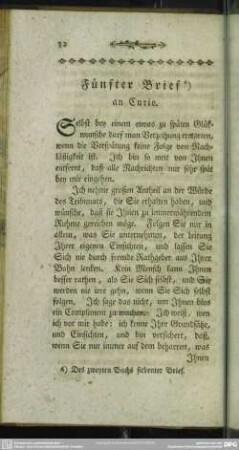 52
Fünfter Brief *)
an Curio.
Selbst bey einem etwas zu späten Glük-
wunsche darf man Verzeihung erwarten,
wenn die Verspätung keine Folge von Nach-
lässigkeit ist. Ich bin so weit von Ihnen
entfernt, daß alle Nachrichten nur sehr spät
bey mir eingehen.
Ich nehme großen Antheil an der Würde
des Tribunats, die Sie erhalten haben, und
wünsche, daß sie Ihnen zu immerwährendem
Ruhme gereichen möge. Folgen Sie nur in
allem, was Sie unternehmen, der Leitung
Ihrer eigenen Einsichten, und lassen Sie
Sich nie durch fremde Rathgeber aus Ihrer
Bahn lenken. Kein Mensch kann Ihnen
besser rathen, als Sie Sich selbst, und Sie
werden nie irre gehn, wenn Sie Sich selbst
folgen. Ich sage das nicht, um Ihnen blos
ein Compliment zu machen. Ich weiß, wen
ich vor mir habe: ich kenne Ihre Grundsätze,
und Einsichten, und bin versichert, daß,
wenn Sie nur immer auf dem beharren, was
Ihnen
*) Des zweyten Buchs siebenter Brief.